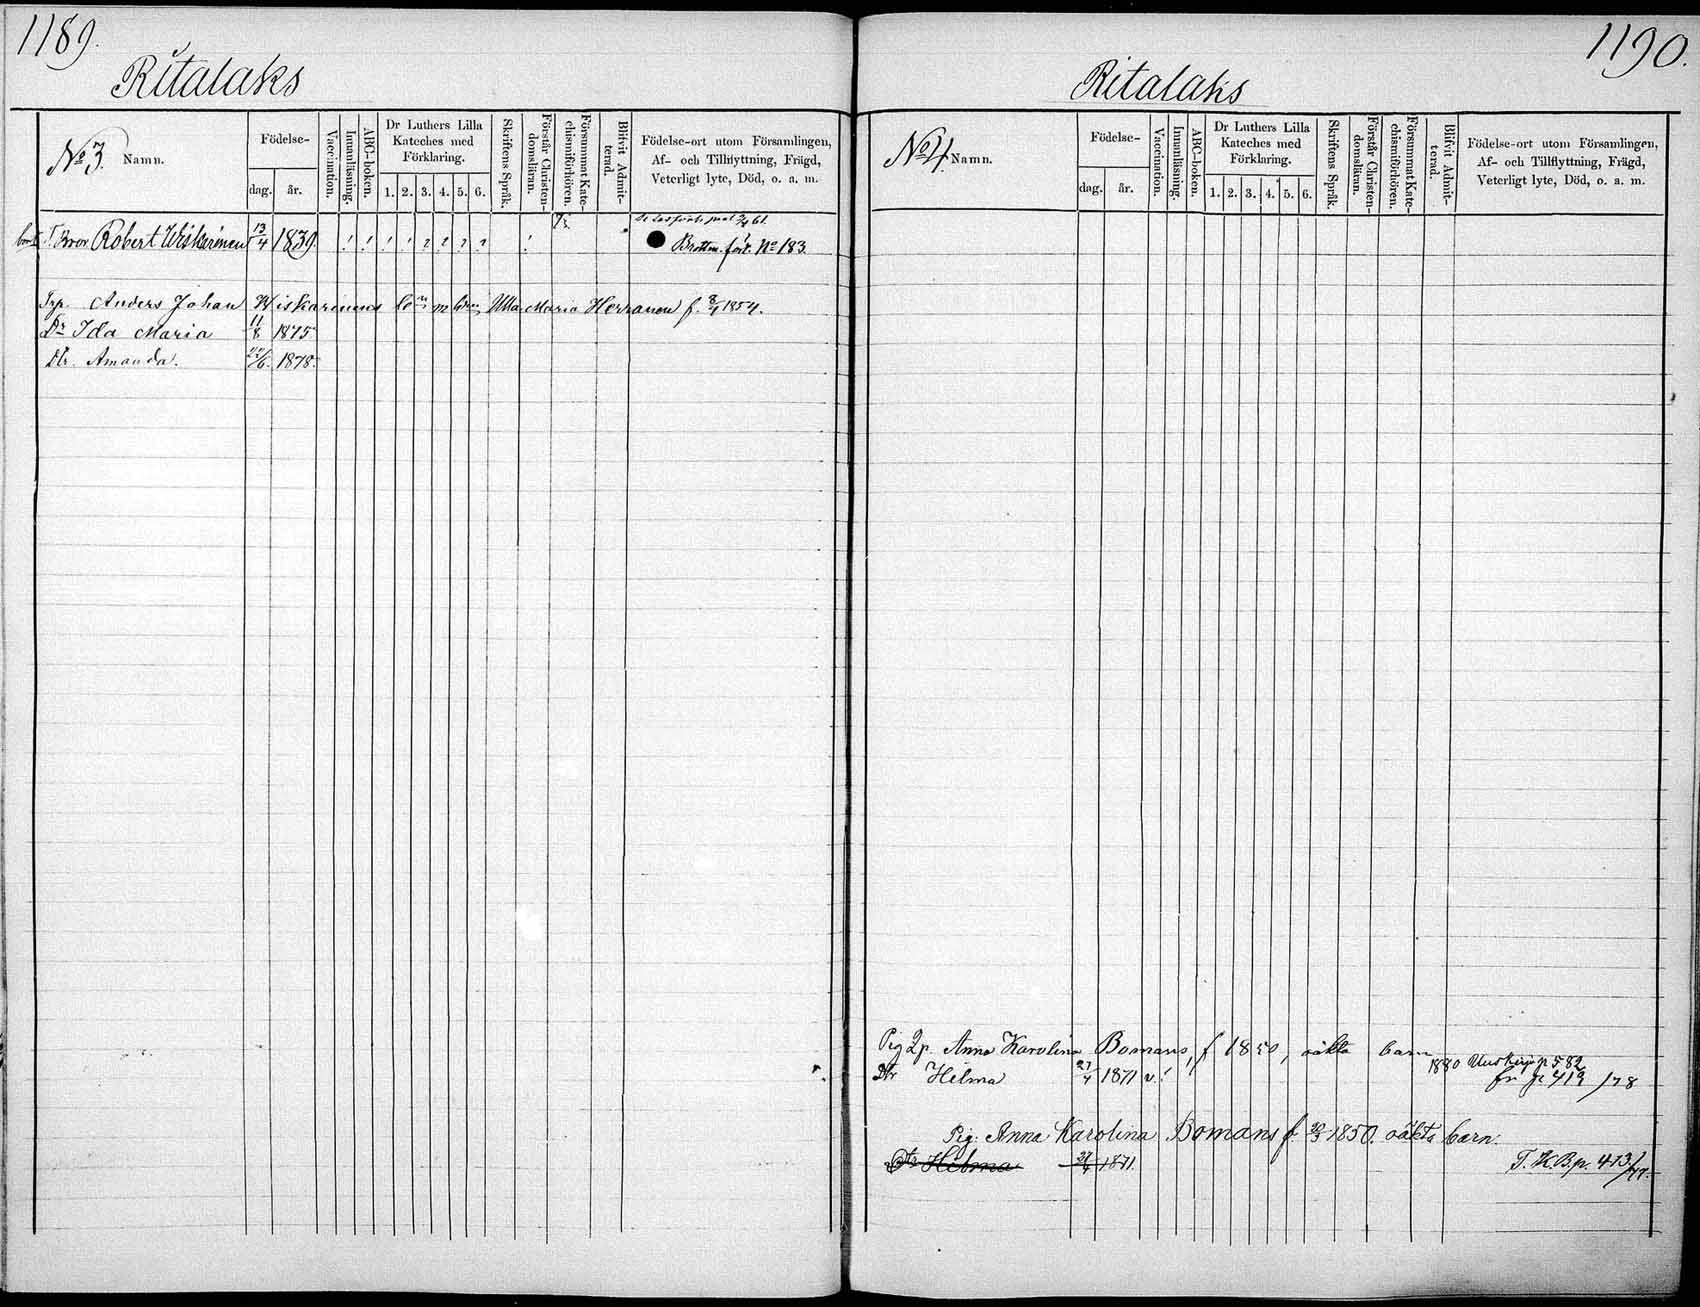 1189.
Ritalaks
No 3. Namn.
Födelse-
dag.
år.
Vaccination.
Innanläsning.
ABC-boken.
Dr Luthers Lilla
Kateches med
Förklaring.
1. 2. 3. 4. 5. 6.
Skriftens Språk.
Förstår Christen-
domsläran.
Försummat Kate-
chismiförhören.
Blifvit Admit-
terad.
Födelse-ort utom Församlingen,
Af- och Tillflyttning, Frägd,
Veterligt lyte, Död, o. a. m.
Robert Wiskarinen 13/4 1839.
Brottm. fört. No 183.
Anders Johan Wiskarinens Ulla Maria Herranen f. 8/4 1854.
Dr Ida Maria 11/8 1875
Dtr. Amanda. 1878.
1190.
Ritalaks
No 4. Namn.
Födelse-
dag.
år.
Vaccination.
Innanläsning.
ABC-boken.
Dr Luthers Lilla
Kateches med
Förklaring.
1. 2. 3. 4. 5. 6.
Skriftens Språk.
Förstår Christen-
domslärann.
Försummat Kate-
chismiförhören.
Blifvit Admit-
terad.
Födelse-ort utom Församlingen,
Af- och Tillflyttning, Frägd,
Veterligt lyte, Död, o. a. m.
Pig Anna Karolina Bomans, f 1850, oäkta barn
1880 p 582
Dtr Helma 27/4 1871 v. p. 419 /78
Pig. Anna Karolina Bomans f. 1850. oäkta barn.
Dtr Helma 27/4 1871. T.K.B.p. 413/77.